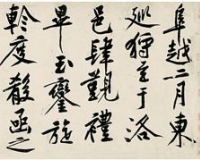 阜越二月東
巡狩至于洛
邑肆覲禮
畢玉鑾旋
軫度殽函之